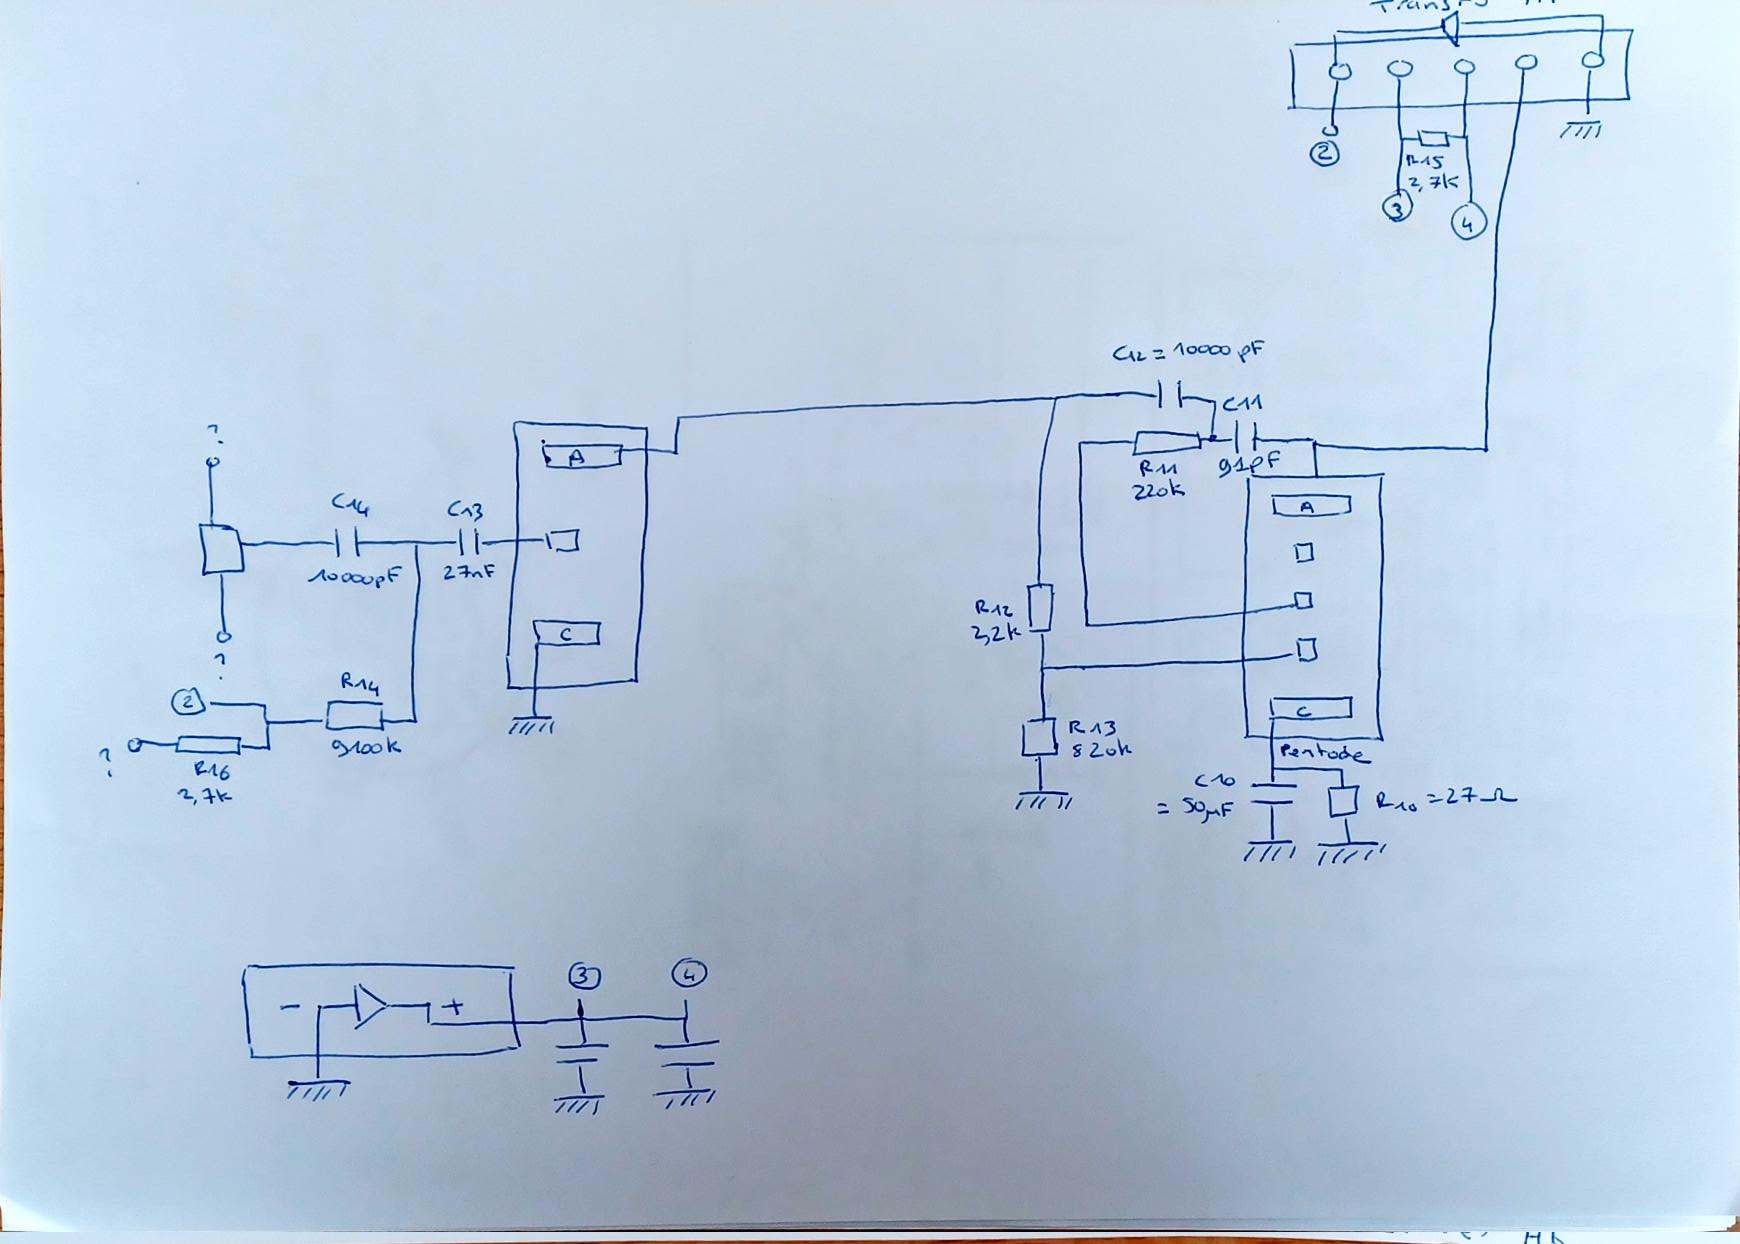 ②
R15
2,7k
③
④
C12 = 10000 pF
C11
91pF
R11
220k
A
C
Pentode
C10
= 50µF
R10 = 27 Ω
R12
2,2k
R13
820k
A
C
?
C14
10000pF
C13
27nF
?
②
R14
9100k
?
R16
2,7k
-
+
③
④